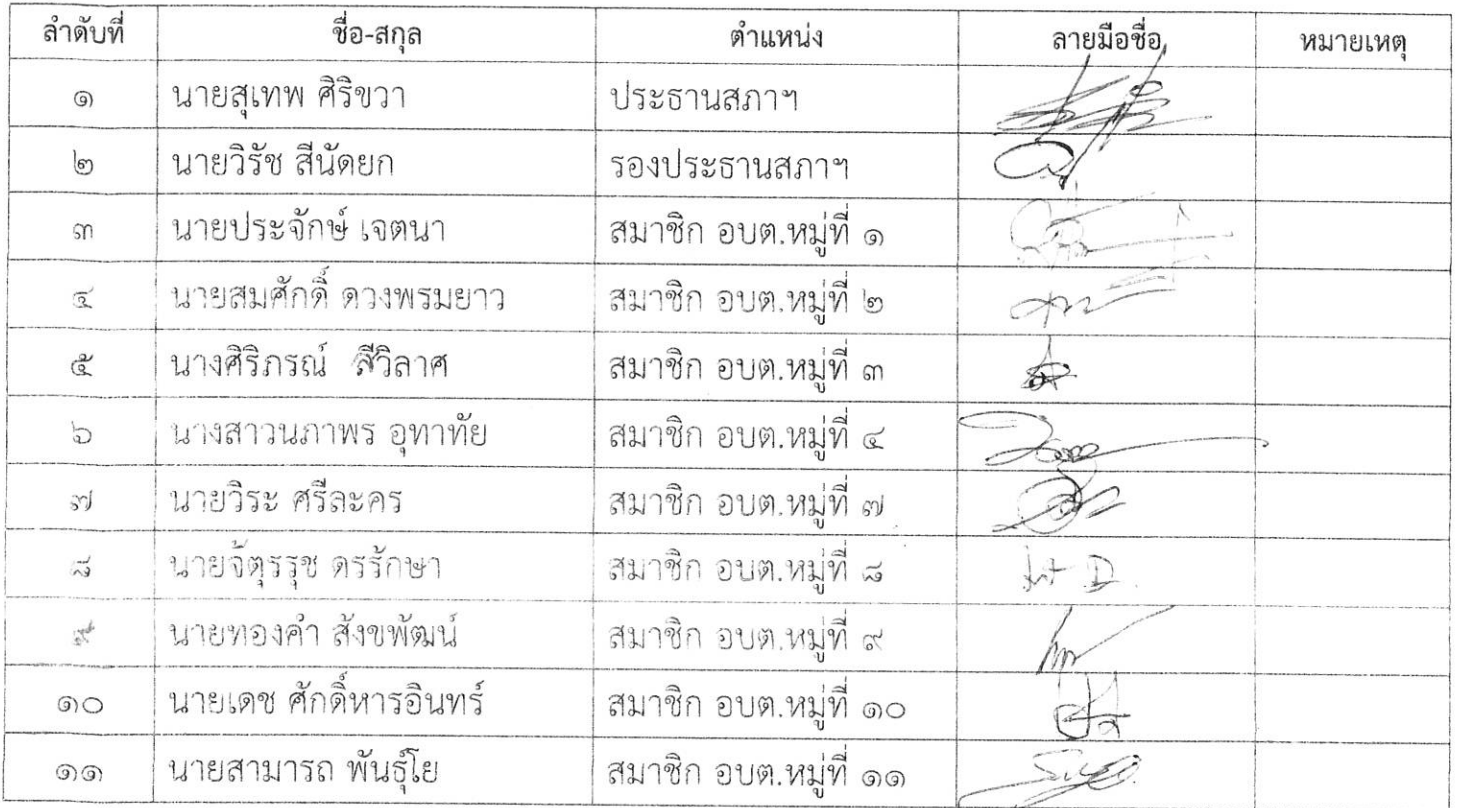 ลำดับที่ ชื่อ-สกุล ตำแหน่ง ลายมือชื่อ หมายเหตุ
๑ นายสุเทพ ศิริขวา ประธานสภาฯ
๒ นายวิรัช สีนัดยก รองประธานสภาฯ
๓ นายประจักษ์ เจตนา สมาชิก อบต.หมู่ที่ ๑
๔ นายสมศักดิ์ ดวงพรมยาว สมาชิก อบต.หมู่ที่ ๒
๕ นางศิริภรณ์ สีวิลาศ สมาชิก อบต.หมู่ที่ ๓
๖ นางสาวนภาพร อุทาทัย สมาชิก อบต.หมู่ที่ ๔
๗ นายวิระ ศรีละคร สมาชิก อบต.หมู่ที่ ๗
๘ นายจัตุรรุช ดรรักษา สมาชิก อบต.หมู่ที่ ๘
๙ นายทองคำ สังขพัฒน์ สมาชิก อบต.หมู่ที่ ๙
๑๐ นายเดช ศักดิ์หารอินทร์ สมาชิก อบต.หมู่ที่ ๑๐
๑๑ นายสามารถ พันธุ์โย สมาชิก อบต.หมู่ที่ ๑๑